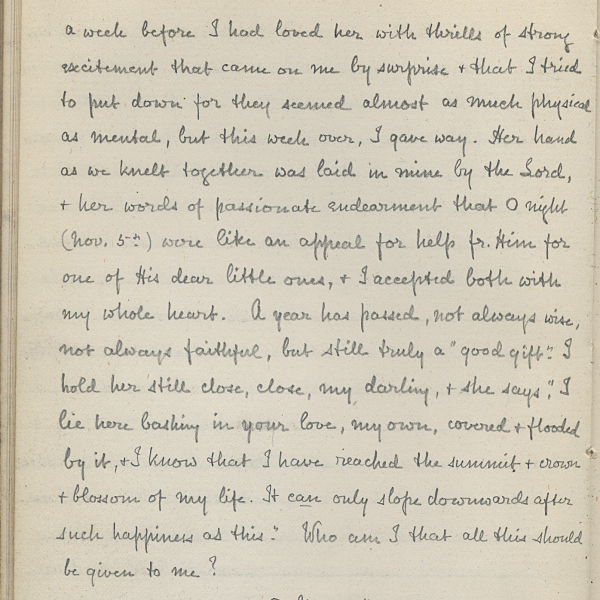 a week before I had loved her with thrills of strong
excitement that came on me by surprise + that I tried
to put down for they seemed almost as much physical
as mental, but this week over, I gave way. Her hand
as we knelt together was laid in mine by the Lord,
+ her words of passionate endearment that O night
(Nov. 5th) were like an appeal for help fr. Him for
one of His dear little ones, + I accepted both with
my whole heart. A year has passed, not always wise,
not always faithful, but still truly a "good gift". I
hold her still close, close, my darling, + she says, "I
lie here basking in your love, my own, covered + flooded
by it, + I know that I have reached the summit + crown
+ blossom of my life. It can only slope downwards after
such happiness as this." Who am I that all this should
be given to me?